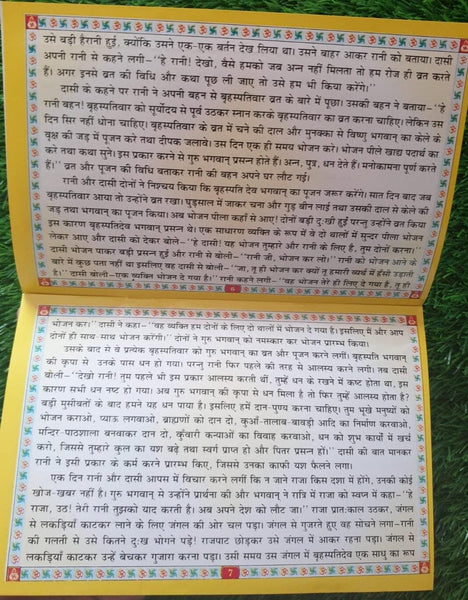 उसे बड़ी हैरानी हुई, क्योंकि उसने एक-एक बर्तन देख लिया था। उसने बाहर आकर रानी को बताया। दासी
अपनी रानी से कहने लगी-''हे रानी! देखो, वैसे हमको जब अन्न नहीं मिलता तो हम रोज ही व्रत करते
हैं। अगर इनसे व्रत की विधि और कथा पूछ ली जाए तो उसे हम भी किया करेंगे।''
दासी के कहने पर रानी ने अपनी बहन से बृहस्पतिवार व्रत के बारे में पूछा। उसकी बहन ने बताया-''हे
रानी बहन! बृहस्पतिवार को सूर्योदय से पूर्व उठकर स्नान करके बृहस्पतिवार का व्रत करना चाहिए। लेकिन उस
दिन सिर नहीं धोना चाहिए। बृहस्पतिवार के व्रत में चने की दाल और मुनक्का से विष्णु भगवान का केले के
वृक्ष की जड़ में पूजन करे तथा दीपक जलावे। उस दिन एक ही समय भोजन करे। भोजन पीले खाद्य पदार्थ का
करे तथा कथा सुने। इस प्रकार करने से गुरु भगवान् प्रसन्न होते हैं। अन्न, पुत्र, धन देते हैं। मनोकामना पूर्ण करते
हैं।'' व्रत और पूजन की विधि बताकर रानी की बहन अपने घर लौट गई।
रानी और दासी दोनों ने निश्चय किया कि बृहस्पति देव भगवान् का पूजन जरूर करेंगे। सात दिन बाद जब
बृहस्पतिवार आया तो उन्होंने व्रत रखा। घुड़साल में जाकर चना और गुड़ बीन लाईं तथा उसकी दाल से केले की
जड़ तथा भगवान् का पूजन किया। अब भोजन पीला कहाँ से आए! दोनों बड़ी दु:खी हुईं परन्तु उन्होंने व्रत किया
इस कारण बृहस्पतिदेव भगवान् प्रसन्न थे। एक साधारण व्यक्ति के रूप में वे दो थालों में सुन्दर पीला भोजन
लेकर आए और दासी को देकर बोले-''हे दासी! यह भोजन तुम्हारे और रानी के लिए है, तुम दोनों करना।''
दासी भोजन पाकर बड़ी प्रसन्न हुई और रानी से बोली-''रानी जी, भोजन कर लो।'' रानी को भोजन आने के
बारे में कुछ पता नहीं था इसलिए वह दासी से बोली-''जा, तू ही भोजन कर क्यों तू हमारी व्यर्थ में हँसी उड़ाती
है।'' दासी बोली-''एक व्यक्ति भोजन दे गया है।'' रानी कहने लगी-''वह भोजन तेरे ही लिए दे गया है, तू ही
6
भोजन कर।'' दासी ने कहा-''वह व्यक्ति हम दोनों के लिए दो थालों में भोजन दे गया है। इसलिए मैं और आप
दोनों ही साथ-साथ भोजन करेंगी।'' दोनों ने गुरु भगवान् को नमस्कार कर भोजन प्रारम्भ किया।
उसके बाद से वे प्रत्येक बृहस्पतिवार को गुरु भगवान् का व्रत और पूजन करने लगीं। बृहस्पति भगवान्
की कृपा से उनके पास धन हो गया। परन्तु रानी फिर पहले की तरह से आलस्य करने लगी। तब दासी
बोली-''देखो रानी! तुम पहले भी इस प्रकार आलस्य करती थीं, तुम्हें धन के रखने में कष्ट होता था, इस
कारण सभी धन नष्ट हो गया। अब गुरु भगवान् की कृपा से धन मिला है तो फिर तुम्हें आलस्य होता है?
बड़ी मुसीबतों के बाद हमने यह धन पाया है। इसलिए हमें दान-पुण्य करना चाहिए। तुम भूखे मनुष्यों को
भोजन कराओ, प्याऊ लगवाओ, ब्राह्मणों को दान दो, कुआँ-तालाब-बावड़ी आदि का निर्माण करवाओ,
मन्दिर-पाठशाला बनवाकर दान दो, कुंवारी कन्याओं का विवाह करवाओ, धन को शुभ कार्यों में खर्च
करो, जिससे तुम्हारे कुल का यश बढ़े तथा स्वर्ग प्राप्त हो और पितर प्रसन्न हों।'' दासी की बात मानकर
रानी ने इसी प्रकार के कर्म करने प्रारम्भ किए, जिससे उनका काफी यश फैलने लगा।
एक दिन रानी और दासी आपस में विचार करने लगीं कि न जाने राजा किस दशा में होंगे, उनकी कोई
खोज-खबर नहीं है। गुरु भगवान् से उन्होंने प्रार्थना की और भगवान् ने रात्रि में राजा को स्वप्न में कहा-''हे
राजा, उठ! तेरी रानी तुझको याद करती है। अब अपने देश को लौट जा।'' राजा प्रात:काल उठकर, जंगल
से लकड़ियां काटकर लाने के लिए जंगल की ओर चल पड़ा। जंगल से गुजरते हुए वह सोचने लगा-रानी
की गलती से उसे कितने दु:ख भोगने पड़े! राजपाट छोड़कर उसे जंगल में आकर रहना पड़ा। जंगल से
लकड़ियां काटकर उन्हें बेचकर गुजारा करना पड़ा। उसी समय उस जंगल में बृहस्पतिदेव एक साधु का रूप
7